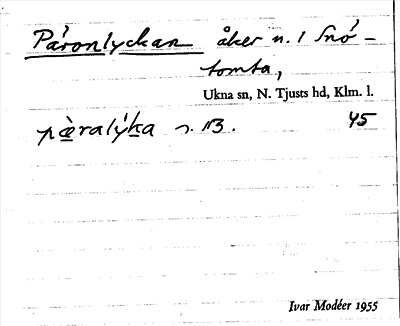 Päronlyckan åker n. 1 Snö-
tomta,
Ukna sn, N. Tjusts hd, Klm. l.
pæ̀ralýka n. 113. 45
Ivar Modéer 1955